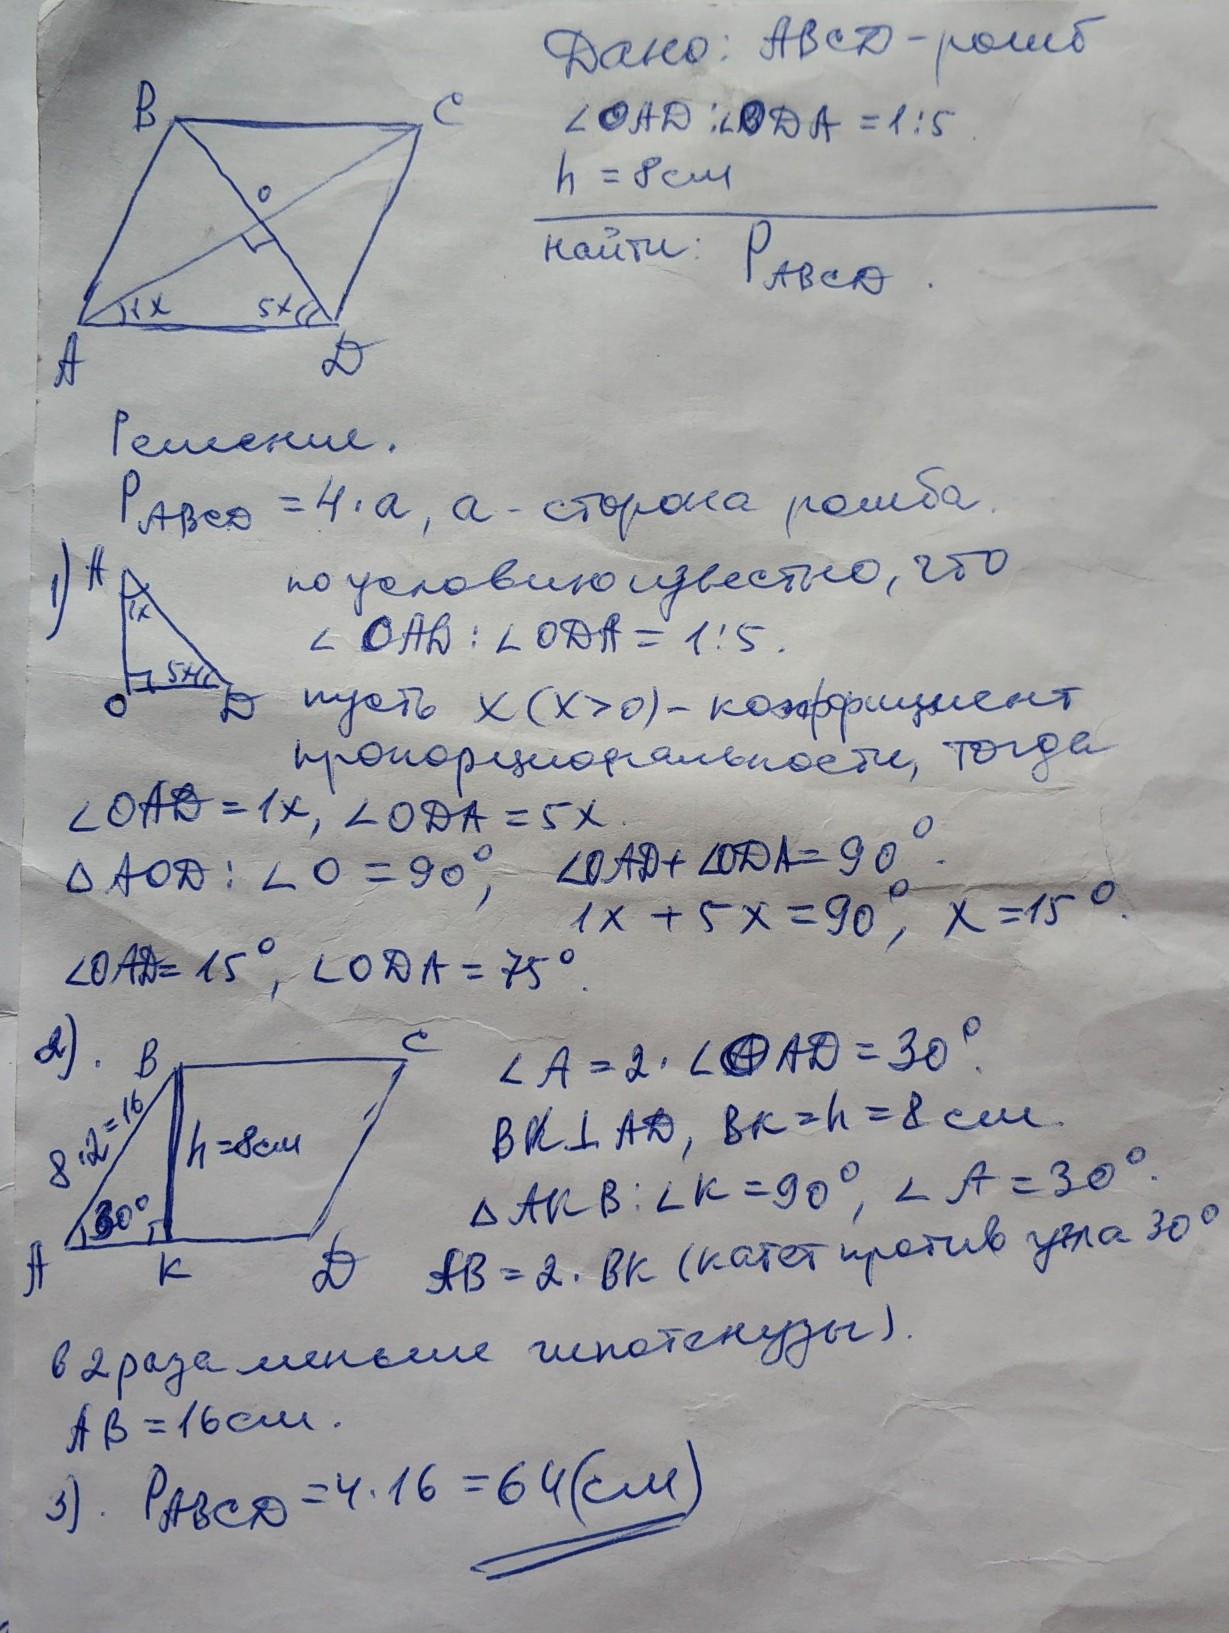 Дано: ABCD - ромб
∠OAD : ∠ODA = 1:5.
h = 8см
найти: P ABCD.
B C
O
1x 5x
A D
Решение.
P ABCD = 4·a, a - сторона ромба.
1) A
1x
5x
O D
по условию известно, что
∠OAD : ∠ODA = 1:5.
пусть x (x>0) - коэффициент
пропорциональности, тогда
∠OAD = 1x, ∠ODA = 5x.
△AOD: ∠O = 90°, ∠OAD + ∠ODA = 90°.
1x + 5x = 90°, x = 15°.
∠OAD = 15°, ∠ODA = 75°.
2). B C
8·2=16
h=8см
30°
A K D
∠A = 2·∠OAD = 30°.
BK⊥AD, BK = h = 8 см.
△AKB: ∠K = 90°, ∠A = 30°.
AB = 2·BK (катет против угла 30°
в 2 раза меньше гипотенузы).
AB = 16 см.
3). P ABCD = 4·16 = 64 (см)